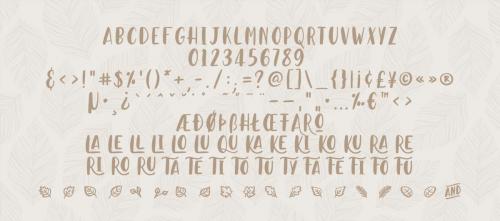 ABCDEFGHIJKLMNOPQRTUVWXYZ
0123456789
&<>!"#$%'()*+,-./:;=?@[]\_{}|¡¢£¥©«»®
µ·¸¿`´ˆ˜¯˘˙¨˚˝–—‚"„•…‰€™<>
ÆÐØÞßŁŒFARO
LA LE LL LI LO LU QU KA KE KI KO KU RA RE
RI RO RU TA TE TI TO TU TY FA FE FI FO FU
AND